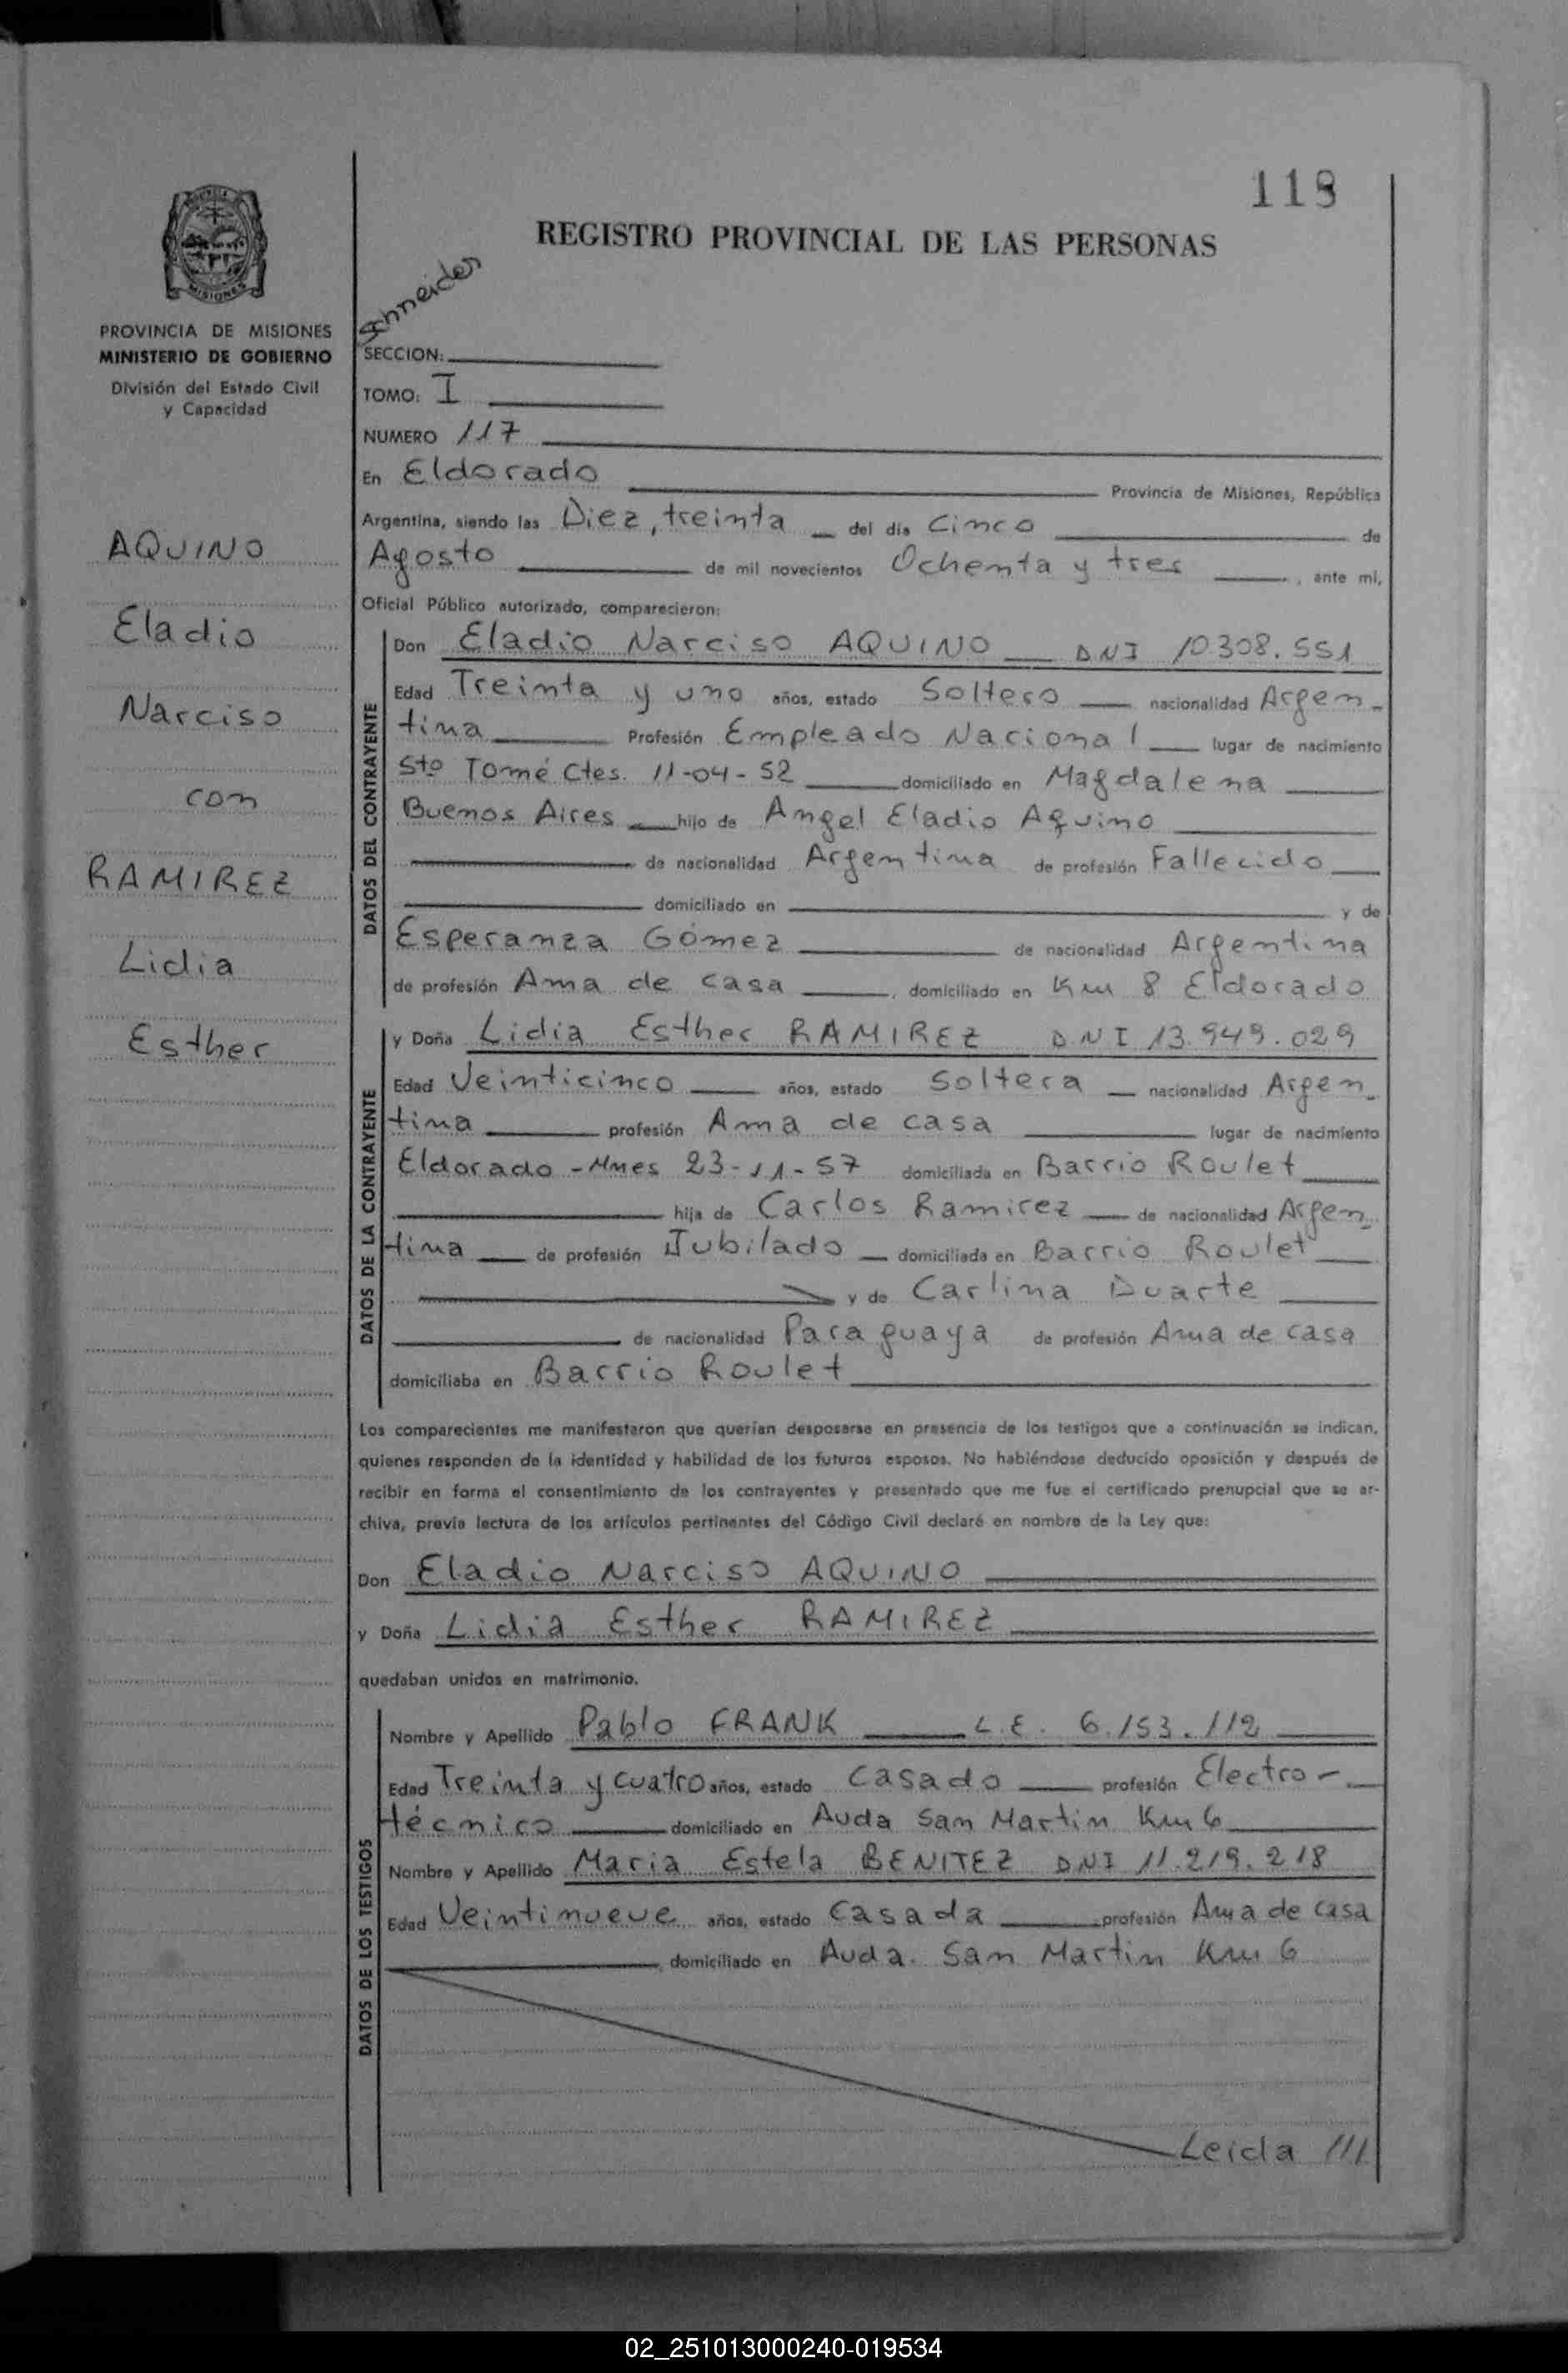 118
REGISTRO PROVINCIAL DE LAS PERSONAS
MISIONES
PROVINCIA DE MISIONES
MINISTERIO DE GOBIERNO
División del Estado Civil
y Capacidad
AQUINO
Eladio
Narciso
con
RAMIREZ
Lidia
Esther
SECCION:
TOMO: I
NUMERO 117
En Eldorado Provincia de Misiones, República
Argentina, siendo las Diez, treinta del día Cinco de
Agosto de mil novecientos Ochenta y tres, ante mi,
Oficial Público autorizado, comparecieron:
DATOS DEL CONTRAYENTE
Don Eladio Narciso AQUINO DNI 10308.551
Edad Treinta y uno años, estado Soltero nacionalidad Argen-
tina Profesión Empleado Nacional lugar de nacimiento
Sto Tomé Ctes. 11-04-52 domiciliado en Magdalena
Buenos Aires hijo de Angel Eladio Aquino
de nacionalidad Argentina de profesión Fallecido
domiciliado en y de
Esperanza Gómez de nacionalidad Argentina
de profesión Ama de casa, domiciliado en Km 8 Eldorado
DATOS DE LA CONTRAYENTE
y Doña Lidia Esther RAMIREZ DNI 13.949.029
Edad Veinticinco años, estado Soltera nacionalidad Argen-
tina profesión Ama de casa lugar de nacimiento
Eldorado - Mnes 23-11-57 domiciliada en Barrio Roulet
hija de Carlos Ramirez de nacionalidad Argen-
tina de profesión Jubilado domiciliada en Barrio Roulet
y de Carlina Duarte
de nacionalidad Paraguaya de profesión Ama de casa
domiciliaba en Barrio Roulet
Los comparecientes me manifestaron que querían desposarse en presencia de los testigos que a continuación se indican,
quienes responden de la identidad y habilidad de los futuros esposos. No habiéndose deducido oposición y después de
recibir en forma el consentimiento de los contrayentes y presentado que me fue el certificado prenupcial que se ar-
chiva, previa lectura de los artículos pertinentes del Código Civil declaré en nombre de la Ley que:
Don Eladio Narciso AQUINO
y Doña Lidia Esther RAMIREZ
quedaban unidos en matrimonio.
DATOS DE LOS TESTIGOS
Nombre y Apellido Pablo FRANK L.E. 6.153.112
Edad Treinta y cuatro años, estado Casado profesión Electro-
técnico domiciliado en Avda San Martin Km 6
Nombre y Apellido Maria Estela BENITEZ DNI 11.219.218
Edad Veintinueve años, estado Casada profesión Ama de casa
domiciliado en Avda. San Martin Km 6
Leida ///
02_251013000240-019534